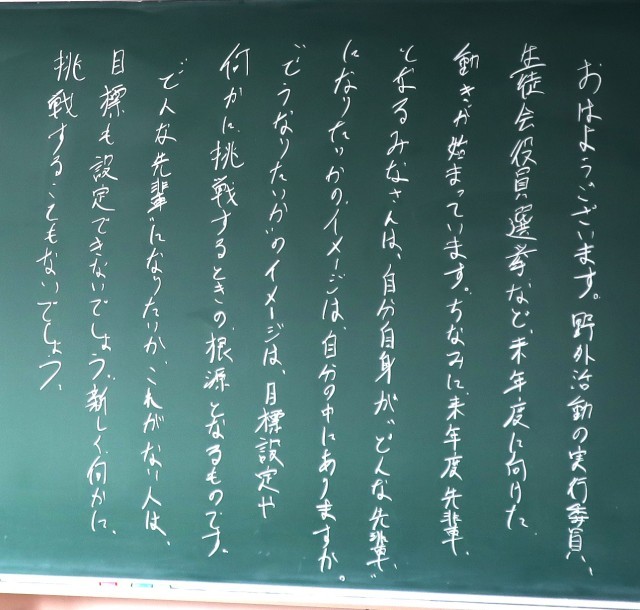 おはようございます。野外活動の実行委員、
生徒会役員選挙など、来年度に向けた
動きが始まっています。ちなみに、来年度先輩、
となるみなさんは、自分自身が“どんな先輩”
になりたいかの、イメージは、自分の中にありますか。
“どうなりたいか”のイメージは、目標設定や
何かに挑戦するときの、根源となるものです。
どんな先輩になりたいか、これがない人は、
目標も設定できないでしょう。新しく、何かに、
挑戦することもないでしょう、